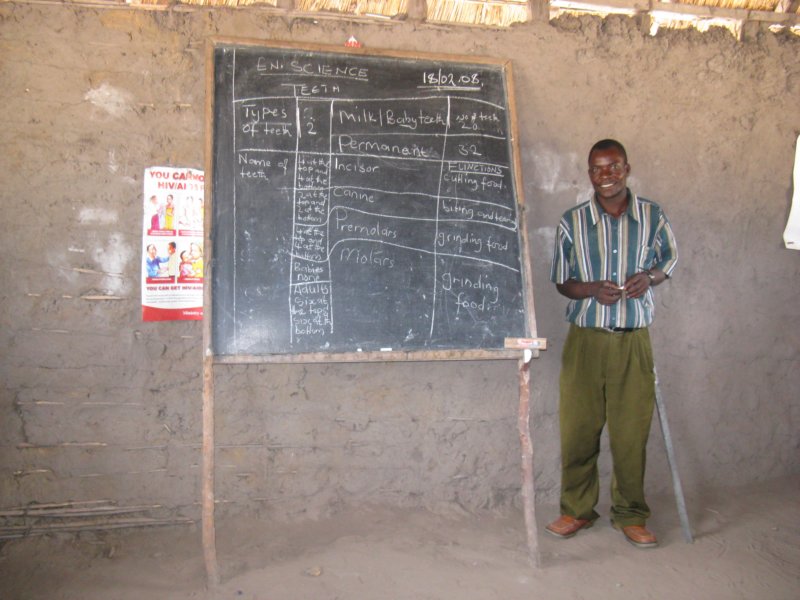 EN. SCIENCE
18/02.08.
TEETH
Types of teeth
2
Milk/Baby teeth
no of teeth
20
Permanent
32
Name of teeth
4 at the top and 4 at the bottom
Incisor
FUNCTIONS
Cutting food.
2 at the top and 2 at the bottom
Canine
biting and tearing
4 at the top and 4 at the bottom
Premolars
grinding food
Babies none
Molars
grinding food.
Adults
Six at the top
Six at the bottom
YOU CANNO
HIV/AI
YOU CAN GET HIV
Ministry